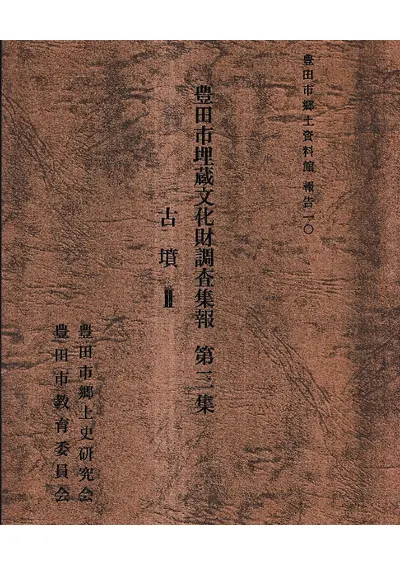 豊田市郷土資料館 報告一〇
豊田市埋蔵文化財調査集報 第三集
古墳Ⅱ
豊田市郷土史研究会
豊田市教育委員会